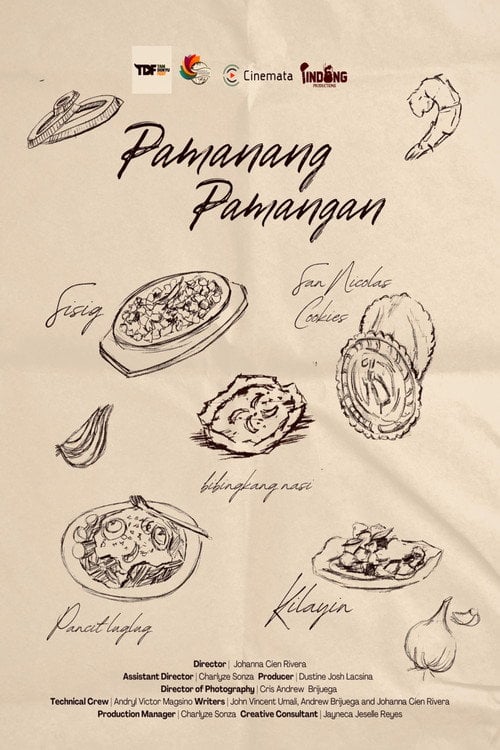 TDF TAN DOKYU FEST
Cinemata
PINDONG
PRODUCTIONS
Pamanang
Pamangan
Sisig
San Nicolas
Cookies
bibingkang nasi
Pancit luglug
Kilayin
Director | Johanna Cien Rivera
Assistant Director | Charlyze Sonza Producer | Dustine Josh Lacsina
Director of Photography | Cris Andrew Brijuega
Technical Crew | Andryl Victor Magsino Writers | John Vincent Umali, Andrew Brijuega and Johanna Cien Rivera
Production Manager | Charlyze Sonza Creative Consultant | Jayneca Jeselle Reyes